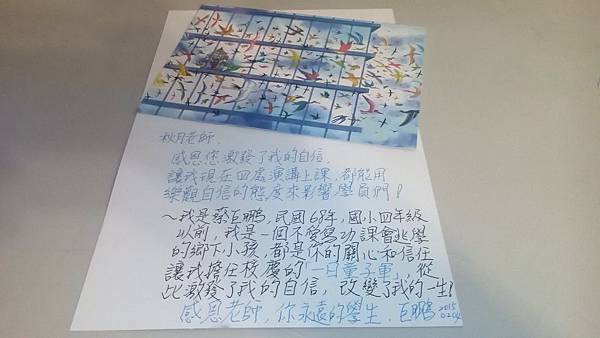 秋月老師,
感恩您激發了我的自信,
讓我現在四處演講上課,都能用
樂觀自信的態度來影響學員們!
~我是蔡巨鵬,民國68年,國小四年級
以前,我是一個不愛寫功課會逃學
的鄉下小孩,都是你的關心和信任
讓我擔任校慶的「一日童子軍」,從
此激發了我的自信,改變了我的一生!
感恩老師,你永遠的學生,巨鵬 2015
0204